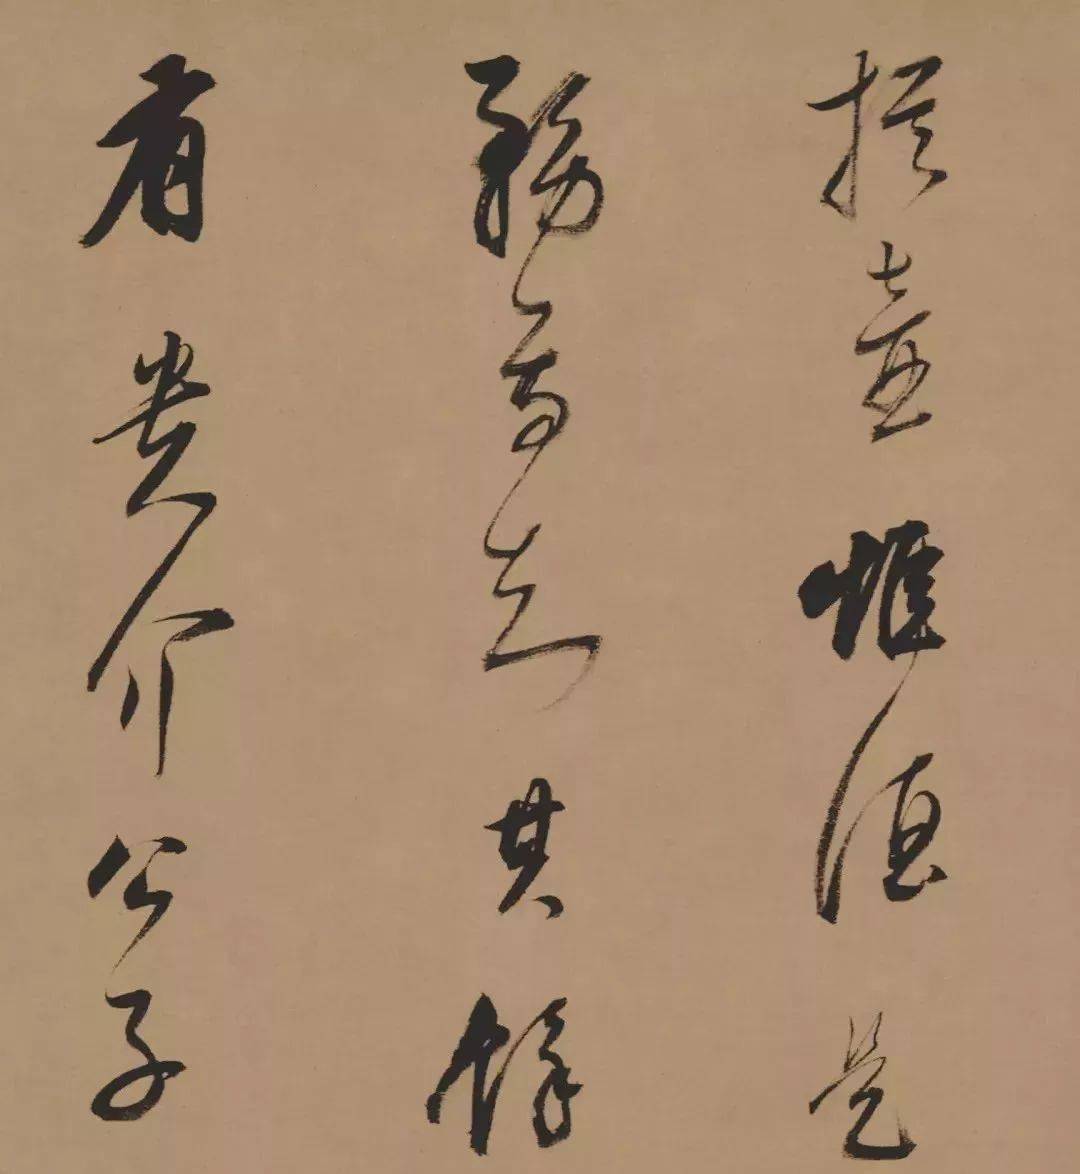 提壺惟酒是
務焉知其餘
有貴介公子